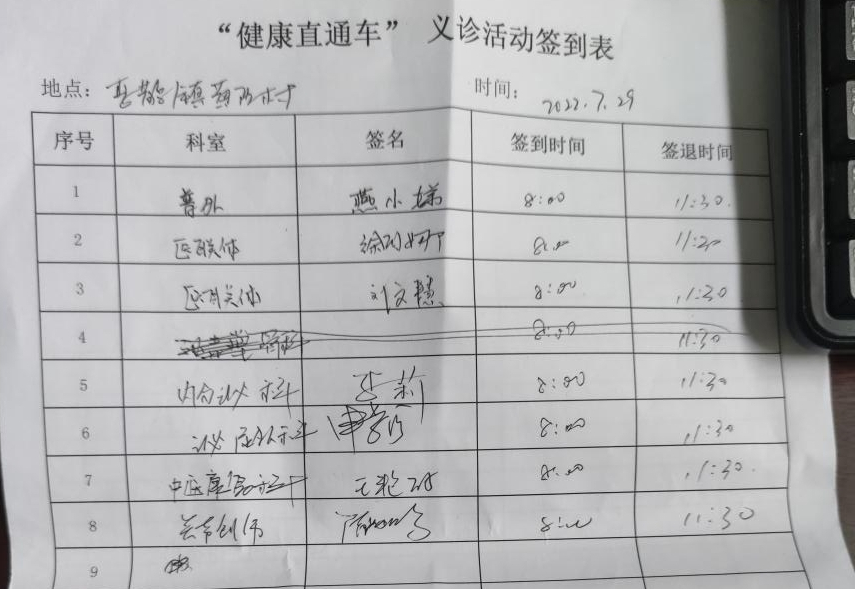 “健康直通车” 义诊活动签到表
地点： 镇 村 时间： 2022.7.29
序号 科室 签名 签到时间 签退时间
1 普外 燕小娣 8:00 11:30
2 医联体 8:00 11:30
3 医联体 刘文慧 8:00 11:30
4 8:00 11:30
5 内分泌科 李莉 8:00 11:30
6 泌尿外科 8:00 11:30
7 中医康复科 王 8:00 11:30
8 关节创伤 8:00 11:30
9